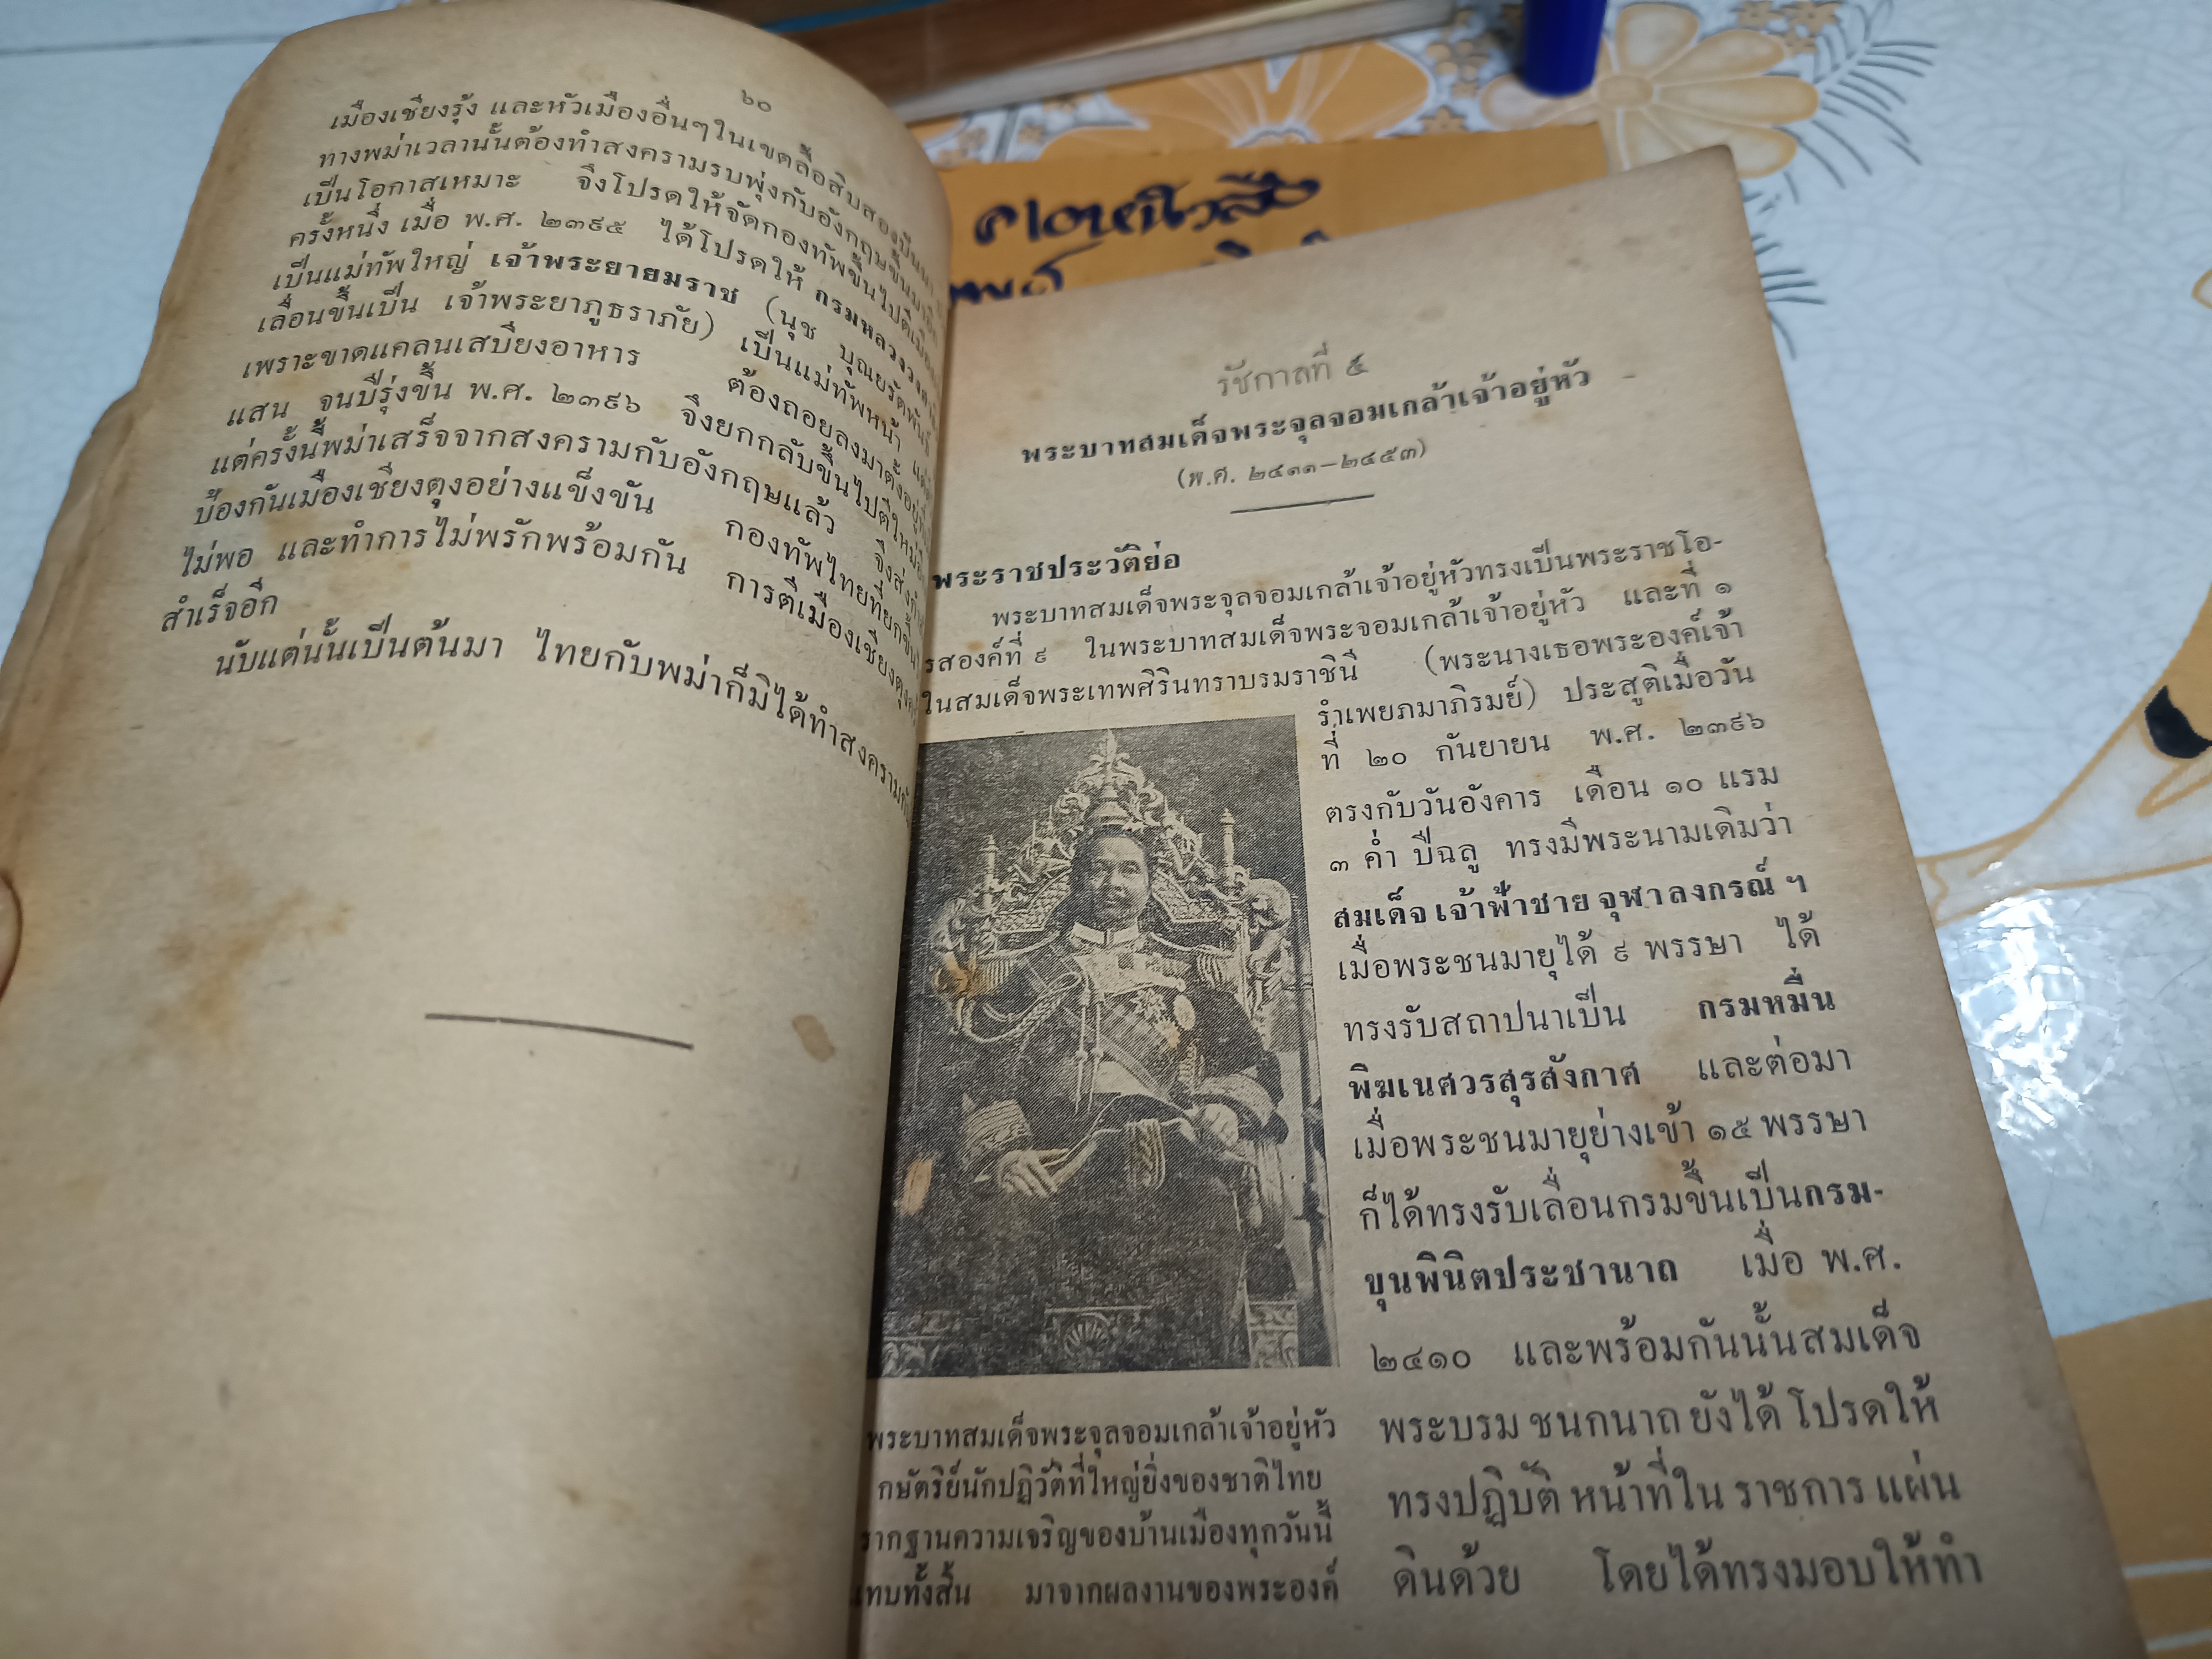 ๖๐
เมืองเชียงรุ้ง และหัวเมืองอื่นๆในเขตลื้อสิบสองปันนา
ทางพม่าเวลานั้นต้องทำสงครามรบพุ่งกับอังกฤษขึ้นมาอีก
เป็นโอกาสเหมาะ จึงโปรดให้จัดกองทัพขึ้นไปตีเมือง
ครั้งหนึ่ง เมื่อ พ.ศ. ๒๓๙๕ ได้โปรดให้ กรมหลวงวงศา
เป็นแม่ทัพใหญ่ เจ้าพระยายมราช (นุช บุณยรัตพันธุ์
เลื่อนขึ้นเป็น เจ้าพระยาภูธราภัย) เป็นแม่ทัพหน้า
เพราะขาดแคลนเสบียงอาหาร ต้องถอยลงมาตั้งอยู่
แสน จนปีรุ่งขึ้น พ.ศ. ๒๓๙๖ จึงยกกลับขึ้นไปตีใหม่
แต่ครั้งนี้พม่าเสร็จจากสงครามกับอังกฤษแล้ว จึงส่ง
ป้องกันเมืองเชียงตุงอย่างแข็งขัน กองทัพไทยที่ยกขึ้น
ไม่พอ และทำการไม่พรักพร้อมกัน การตีเมืองเชียงตุง
สำเร็จอีก
นับแต่นั้นเป็นต้นมา ไทยกับพม่าก็มิได้ทำสงคราม
ถอยหนึ่วสือ
รัชกาลที่ ๕
พระบาทสมเด็จพระจุลจอมเกล้าเจ้าอยู่หัว
(พ.ศ. ๒๔๑๑—๒๔๕๓)
พระราชประวัติย่อ
พระบาทสมเด็จพระจุลจอมเกล้าเจ้าอยู่หัวทรงเป็นพระราชโอ-
รสองค์ที่ ๙ ในพระบาทสมเด็จพระจอมเกล้าเจ้าอยู่หัว และที่ ๑
ในสมเด็จพระเทพศิรินทราบรมราชินี (พระนางเธอพระองค์เจ้า
รำเพยภมาภิรมย์) ประสูติเมื่อวัน
ที่ ๒๐ กันยายน พ.ศ. ๒๓๙๖
ตรงกับวันอังคาร เดือน ๑๐ แรม
๓ ค่ำ ปีฉลู ทรงมีพระนามเดิมว่า
สมเด็จ เจ้าฟ้าชาย จุฬาลงกรณ์ ฯ
เมื่อพระชนมายุได้ ๙ พรรษา ได้
ทรงรับสถาปนาเป็น กรมหมื่น
พิฆเนศวรสุรสังกาศ และต่อมา
เมื่อพระชนมายุย่างเข้า ๑๕ พรรษา
ก็ได้ทรงรับเลื่อนกรมขึ้นเป็นกรม-
ขุนพินิตประชานาถ เมื่อ พ.ศ.
๒๔๑๐ และพร้อมกันนั้นสมเด็จ
พระบรม ชนกนาถ ยังได้ โปรดให้
ทรงปฏิบัติ หน้าที่ใน ราชการ แผ่น
ดินด้วย โดยได้ทรงมอบให้ทำ
พระบาทสมเด็จพระจุลจอมเกล้าเจ้าอยู่หัว
กษัตริย์นักปฏิวัติที่ใหญ่ยิ่งของชาติไทย
รากฐานความเจริญของบ้านเมืองทุกวันนี้
แทบทั้งสิ้น มาจากผลงานของพระองค์